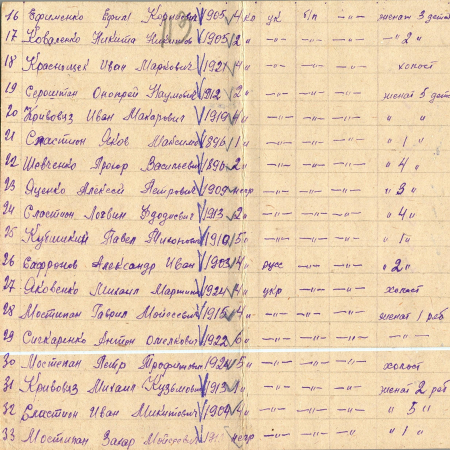 16 Ефименко Ефим Корнеевич 1905 4 ко ук б/п —"— женат 3 дет
17 Коваленко Никита 1905 2 " —"— —"— —"— —"— 2 "
18 Иван Маркович 1921 4 " —"— —"— —"— холост
19 Онопрей Наумович 1912 2 " —"— —"— —"— женат 5 дет
20 Кривовяз Иван Макарович 1919 4 " —"— —"— —"— " "
21 Сластион Яков Максимов 1896 1 " —"— —"— —"— " 1 "
22 Шевченко Прохор Васильевич 1896 2 " —"— —"— —"— " 4 "
23 Яценко Алексей Петрович 1909 негр —"— —"— —"— " 3 "
24 Сластион Логвин 1913 2 " —"— —"— —"— " 4 "
25 Павел Тихонович 1910 5 " —"— —"— —"— " 1 "
26 Сафронов Александр Иван 1903 4 " русс —"— —"— " 2 "
27 Яковенко Михаил Мартин 1924 4 " укр —"— —"— холост
28 Мостипан Гаврил Моисеевич 1915 4 " —"— —"— —"— женат 1 реб
29 Антон Омелкович 1922 6 " —"— —"— —"— —"—
30 Мостепан Петр Трофимович 1924 5 " —"— —"— —"— холост
31 Кривовяз Михаил Кузьмович 1913 4 " —"— —"— —"— женат 2 реб
32 Сластион Иван Никитович 1904 4 " —"— —"— —"— " 5 "
33 Мостипан Захар негр —"— —"— —"— " 1 "